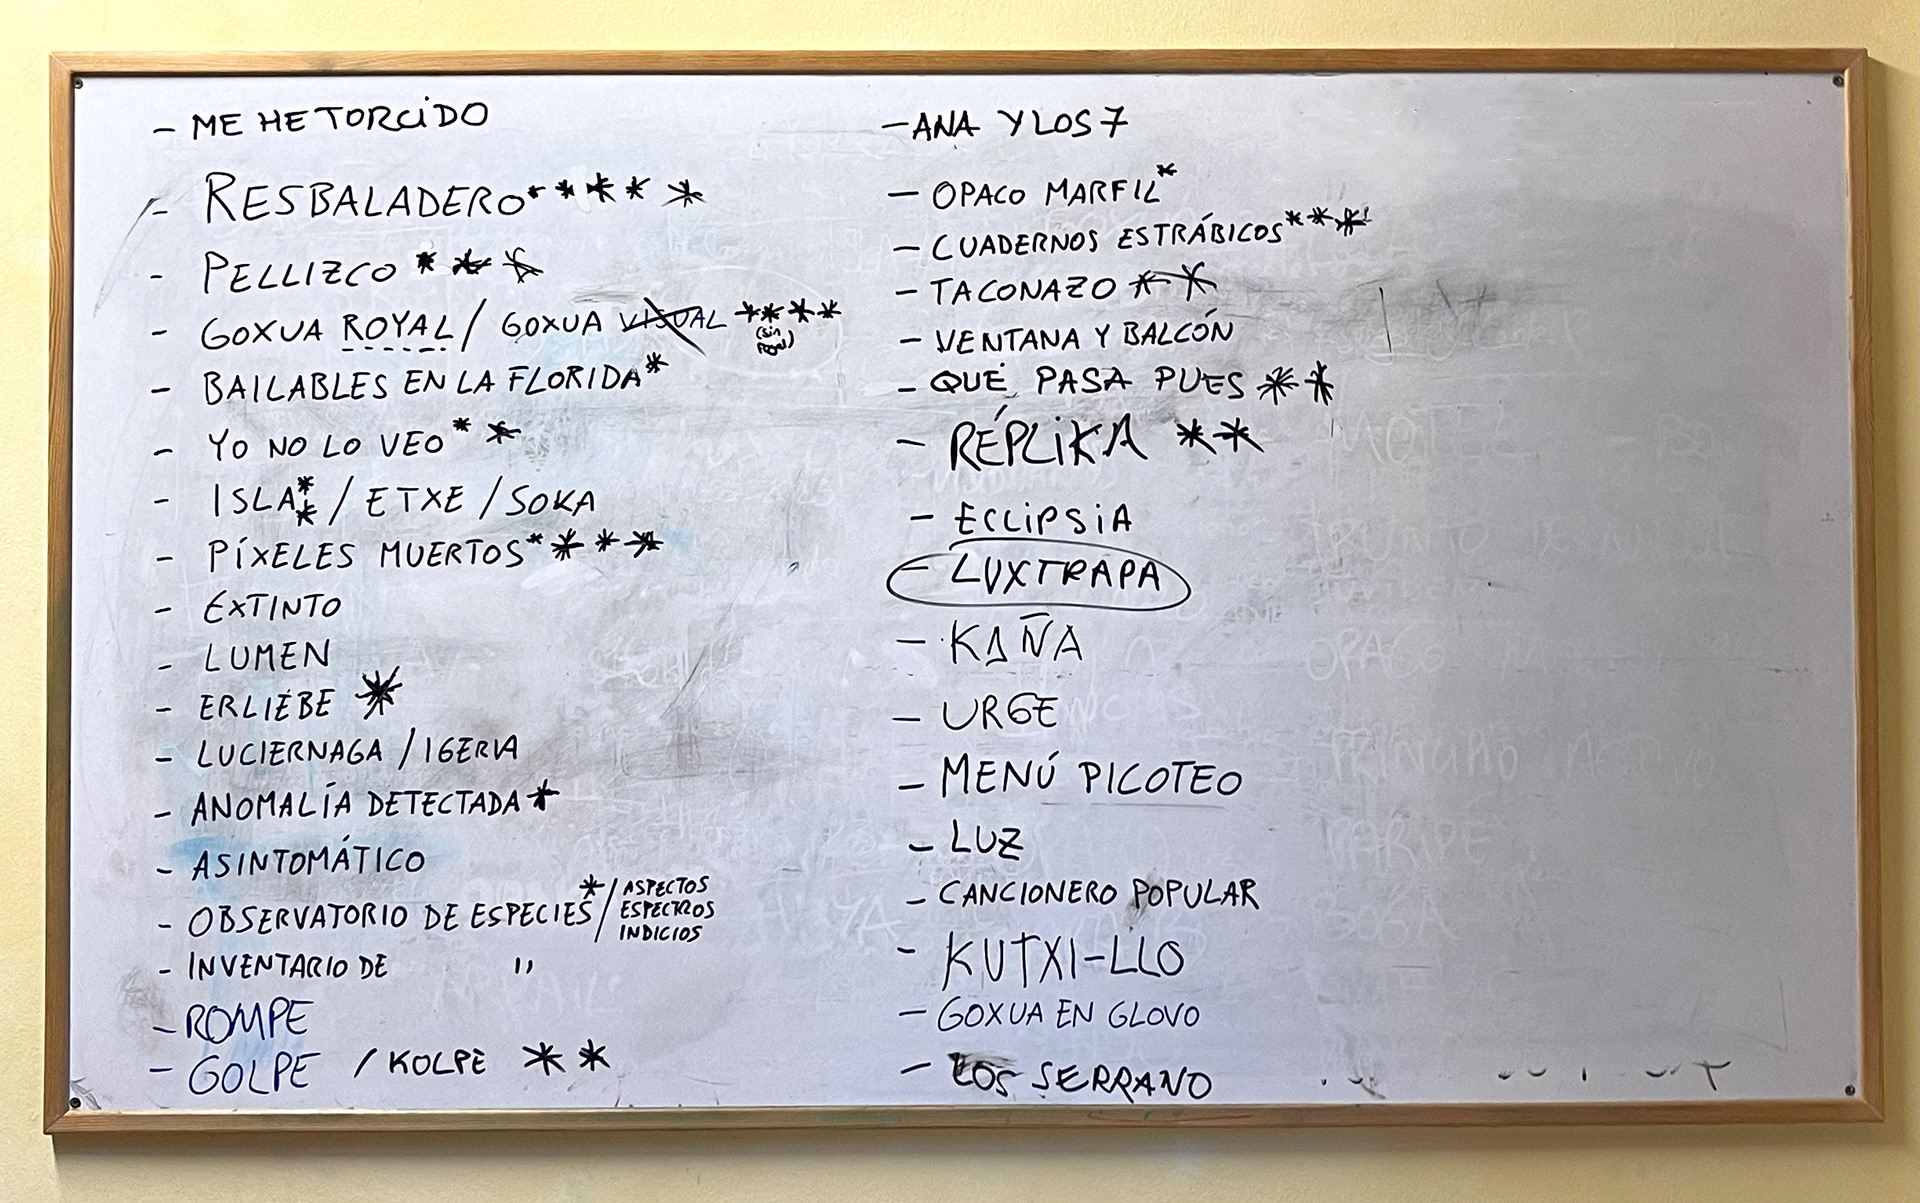 - ME HE TORCIDO
- RESBALADERO * * * * *
- PELLIZCO * * *
- GOXUA ROYAL / GOXUA VISUAL * * * *
(sin
- BAILABLES EN LA FLORIDA *
- YO NO LO VEO * *
- ISLA * * / ETXE / SOKA
- PÍXELES MUERTOS * * * *
- EXTINTO
- LUMEN
- ERLIEBE *
- LUCIERNAGA / IGERIA
- ANOMALÍA DETECTADA *
- ASINTOMÁTICO
- OBSERVATORIO DE ESPECIES * / ASPECTOS
ESPECTROS
INDICIOS
- INVENTARIO DE "
- ROMPE
- GOLPE / KOLPE * *
- ANA Y LOS 7
- OPACO MARFIL *
- CUADERNOS ESTRÁBICOS * * *
- TACONAZO * *
- VENTANA Y BALCÓN
- QUÉ PASA PUES * *
- RÉPLIKA * *
- ECLIPSIA
- LUXTRAPA
- KAÑA
- URGE
- MENÚ PICOTEO
- LUZ
- CANCIONERO POPULAR
- KUTXI-LLO
- GOXUA EN GLOVO
- LOS SERRANO